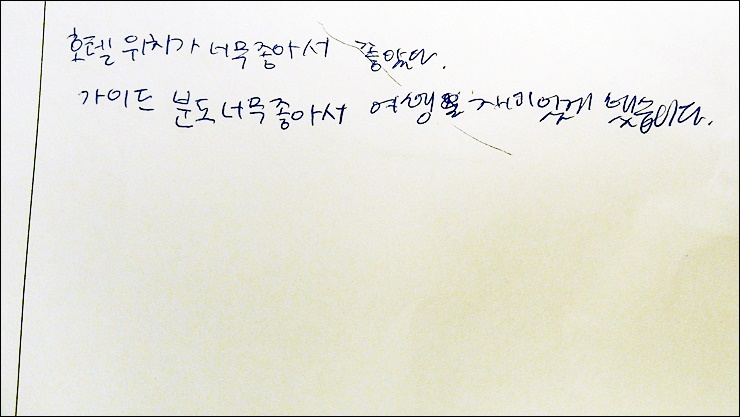 호텔 위치가 너무좋아서 좋았다.
가이드 분도 너무좋아서 여행을 재미있게 했습니다.